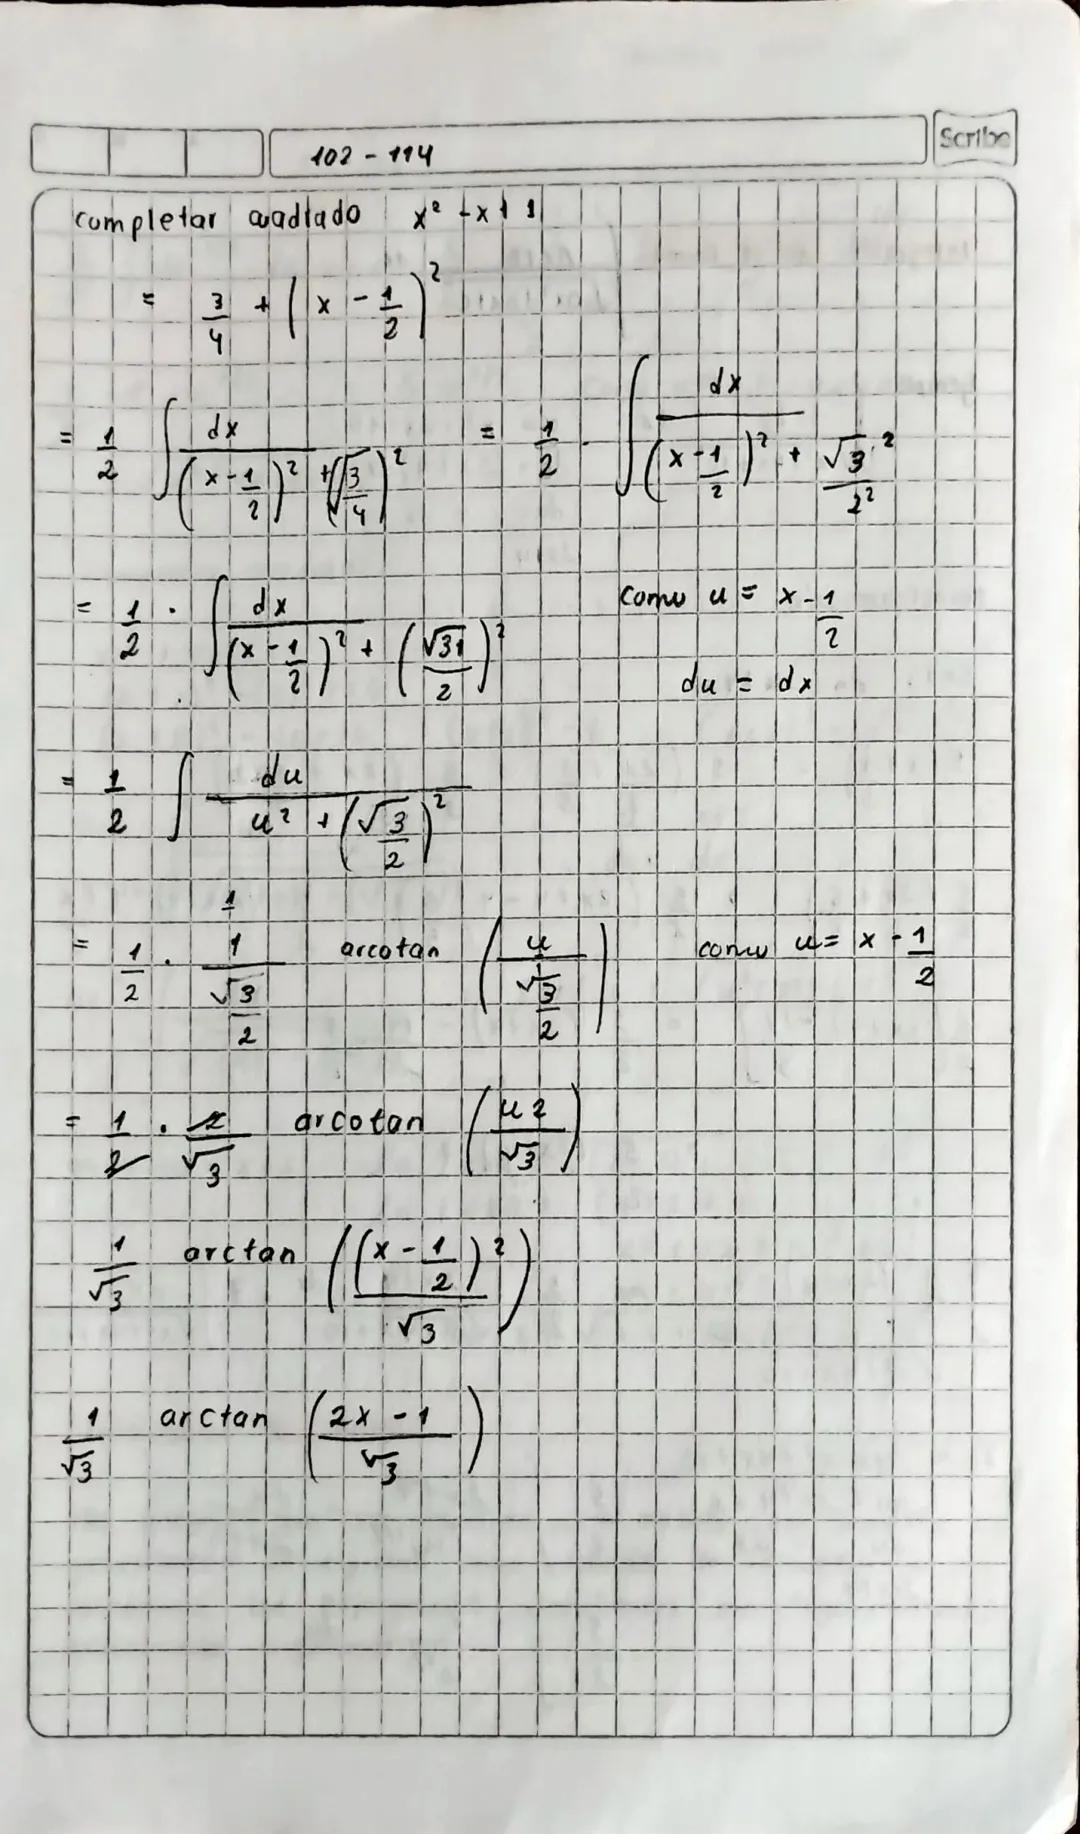 Scribe
102 - 114
completar cuadrado x² - x + 1
= 3/4 + (x - 1/2)²
= 1/2 ∫ dx/((x - 1/2)² + (√(3/4))²) = 1/2 · ∫ dx/((x - 1/2)² + √3²/2²)
= 1/2 · ∫ dx/((x - 1/2)² + (√3/2)²) como u = x - 1/2
du = dx
= 1/2 ∫ du/(u² + (√3/2)²)
1
= 1/2 · 1/(√3/2) arcotan (u/(√3/2)) como u = x - 1/2
= 1/2 · 2/√3 arcotan (u2/√3)
1/√3 arctan ((x - 1/2)2/√3)
1/√3 arctan ((2x - 1)/√3)